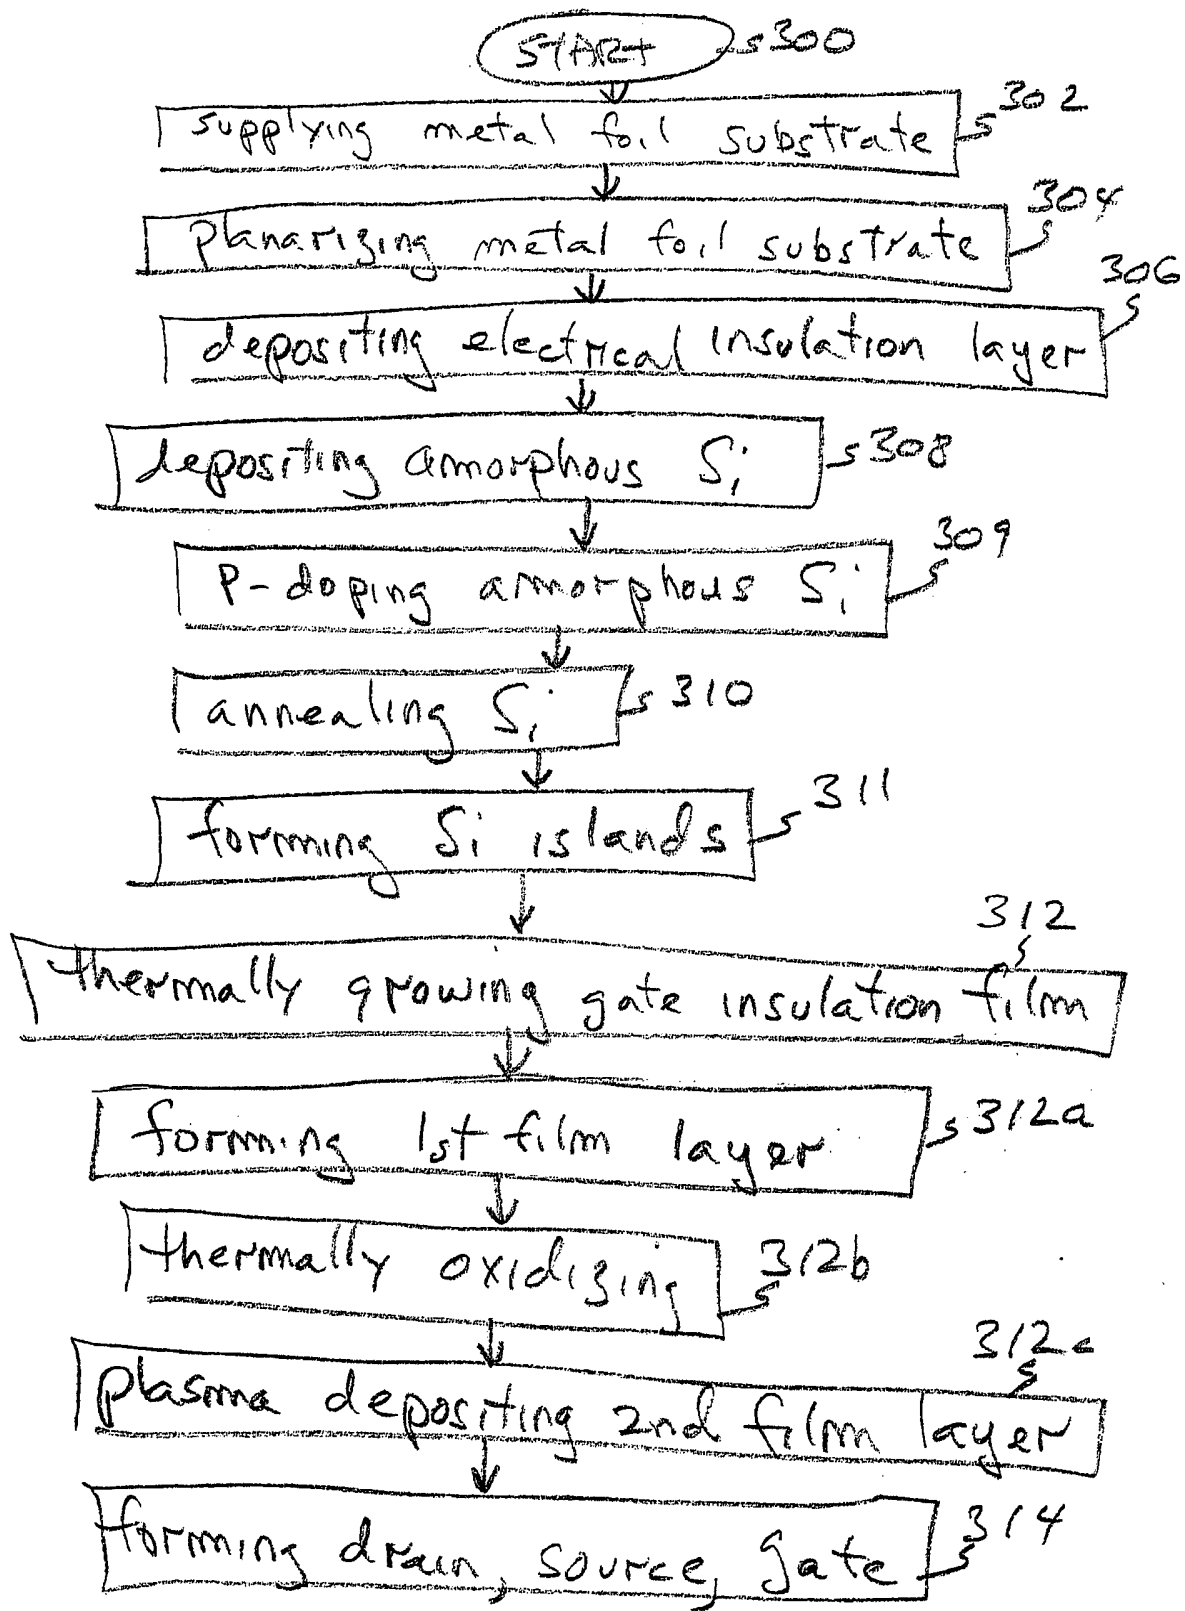 START 300
supplying metal foil substrate 302
planarizing metal foil substrate 304
depositing electrical insulation layer 306
depositing amorphous Si 308
P-doping amorphous Si 309
annealing Si 310
forming Si islands 311
thermally growing gate insulation film 312
forming 1st film layer 312a
thermally oxidizing 312b
plasma depositing 2nd film layer 312c
forming drain, source, gate 314